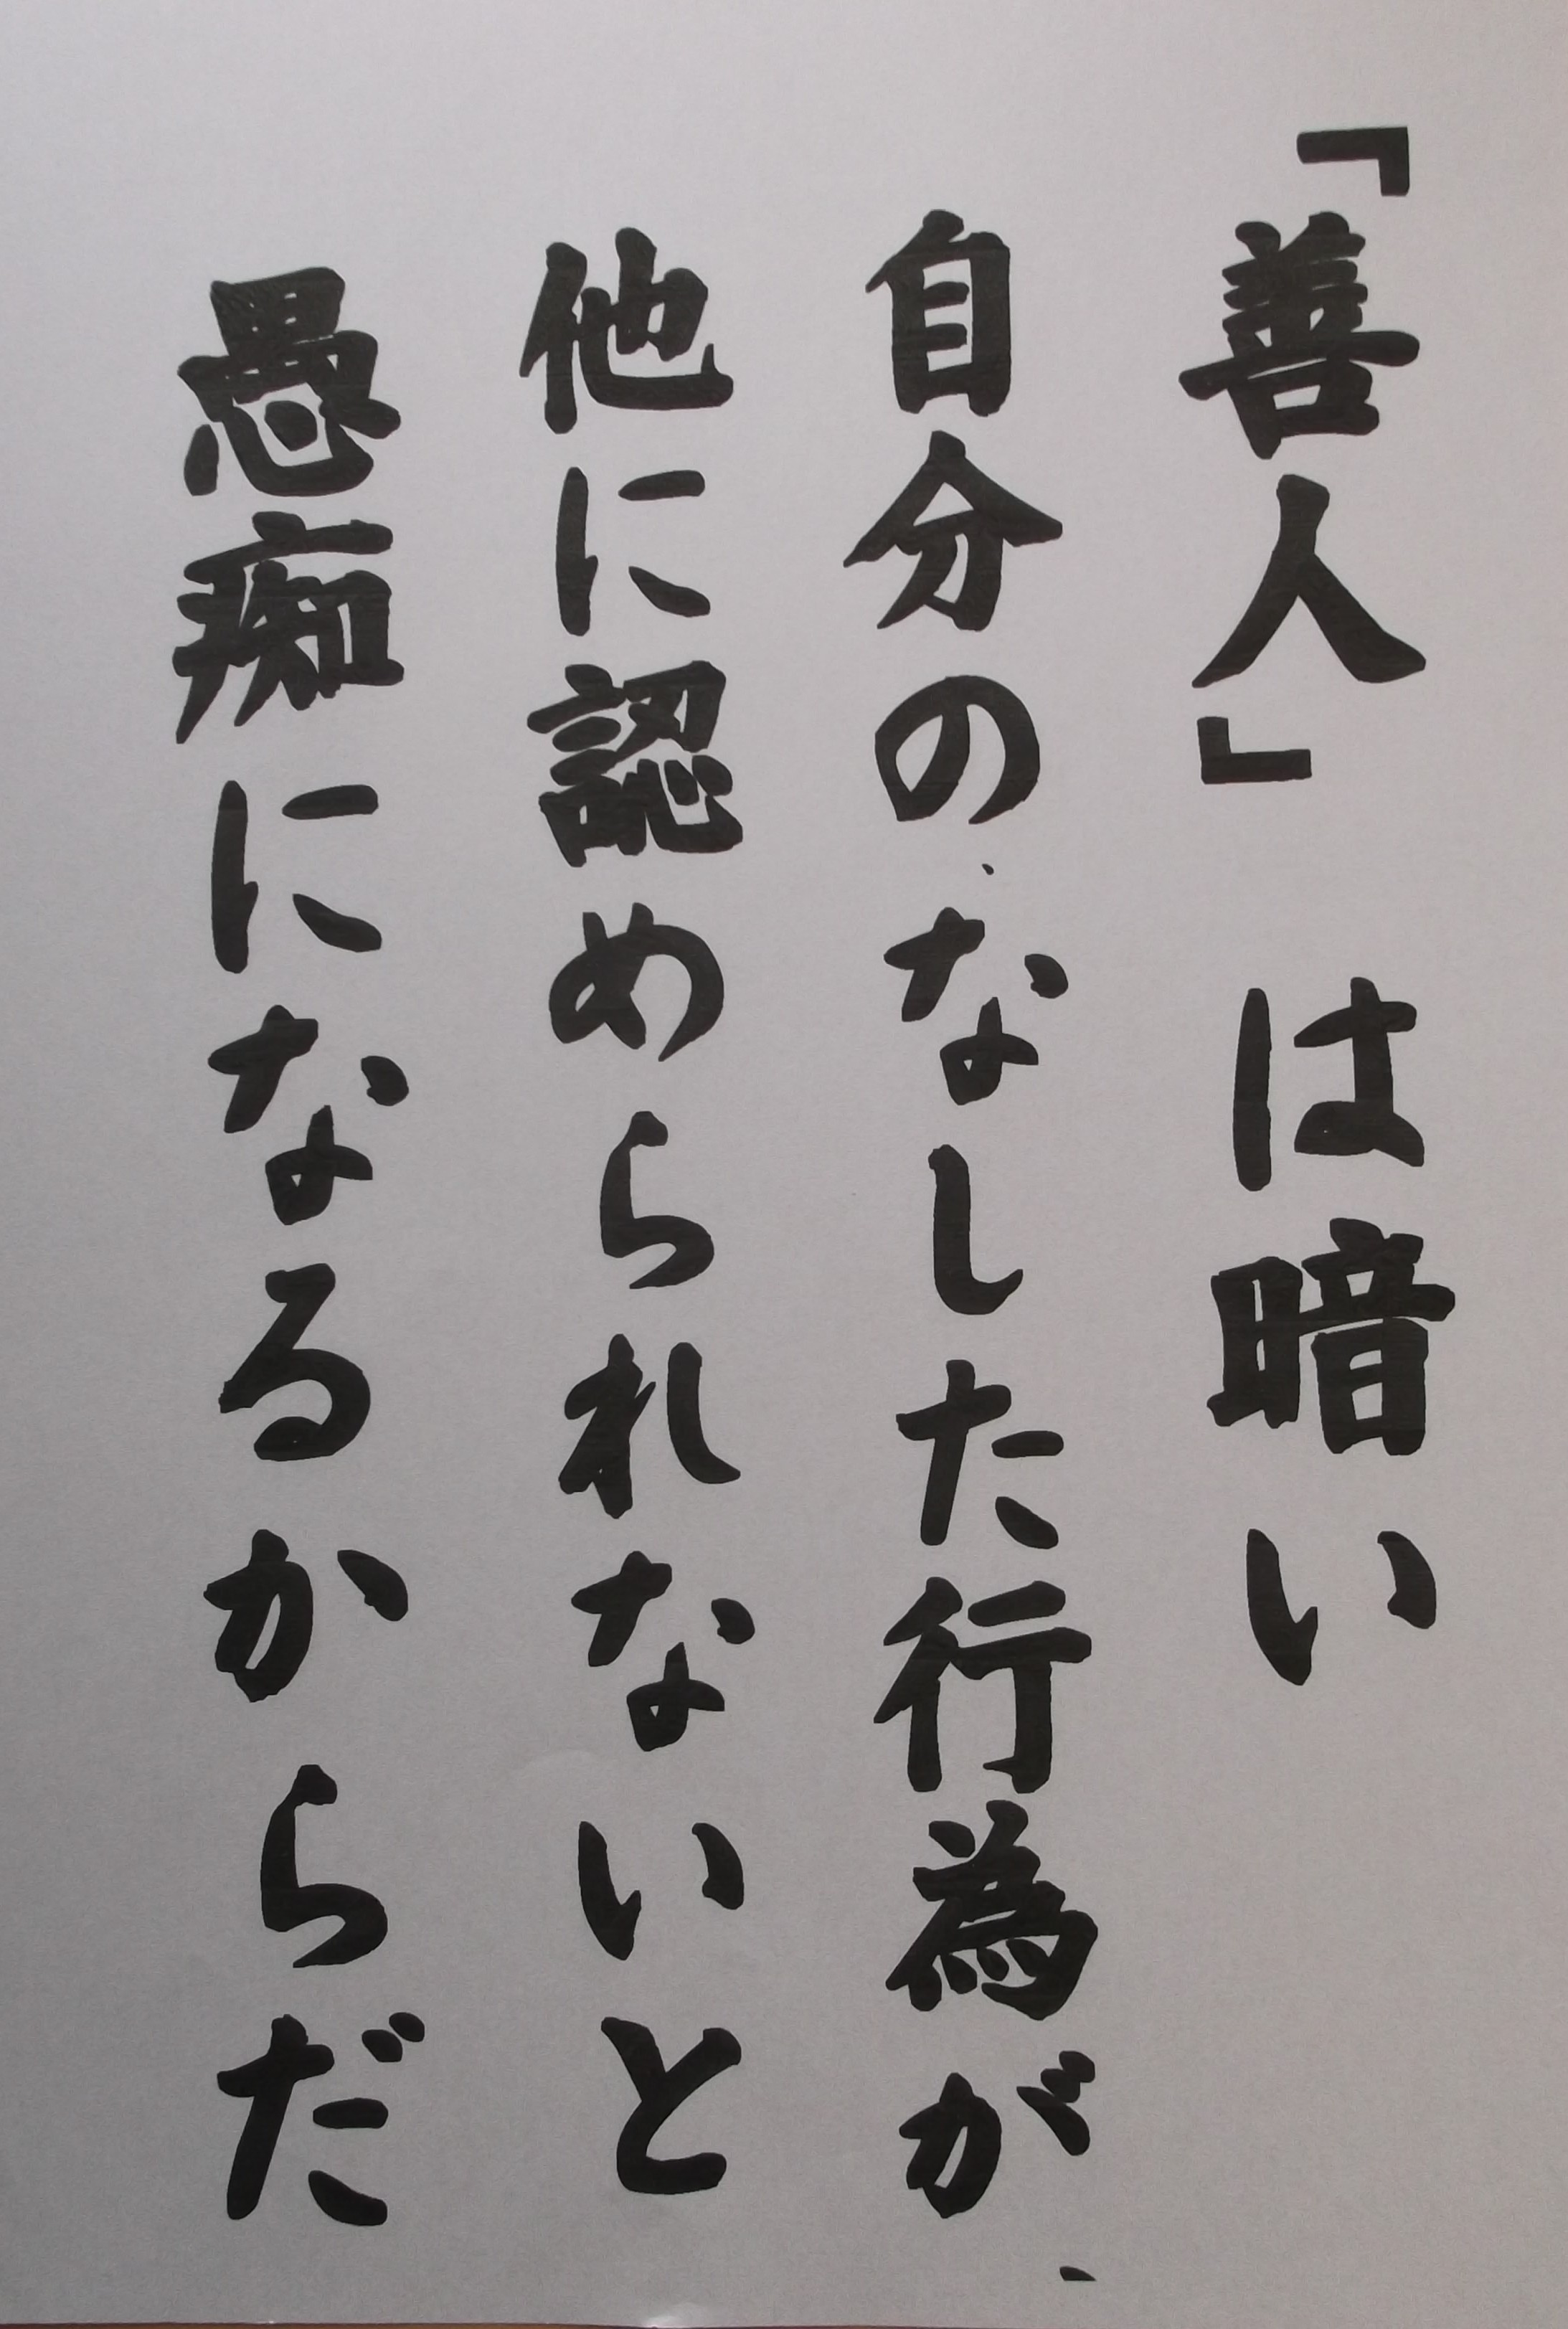 「善人」は暗い
自分の、なした行為が、
他に認められないと
愚痴になるからだ